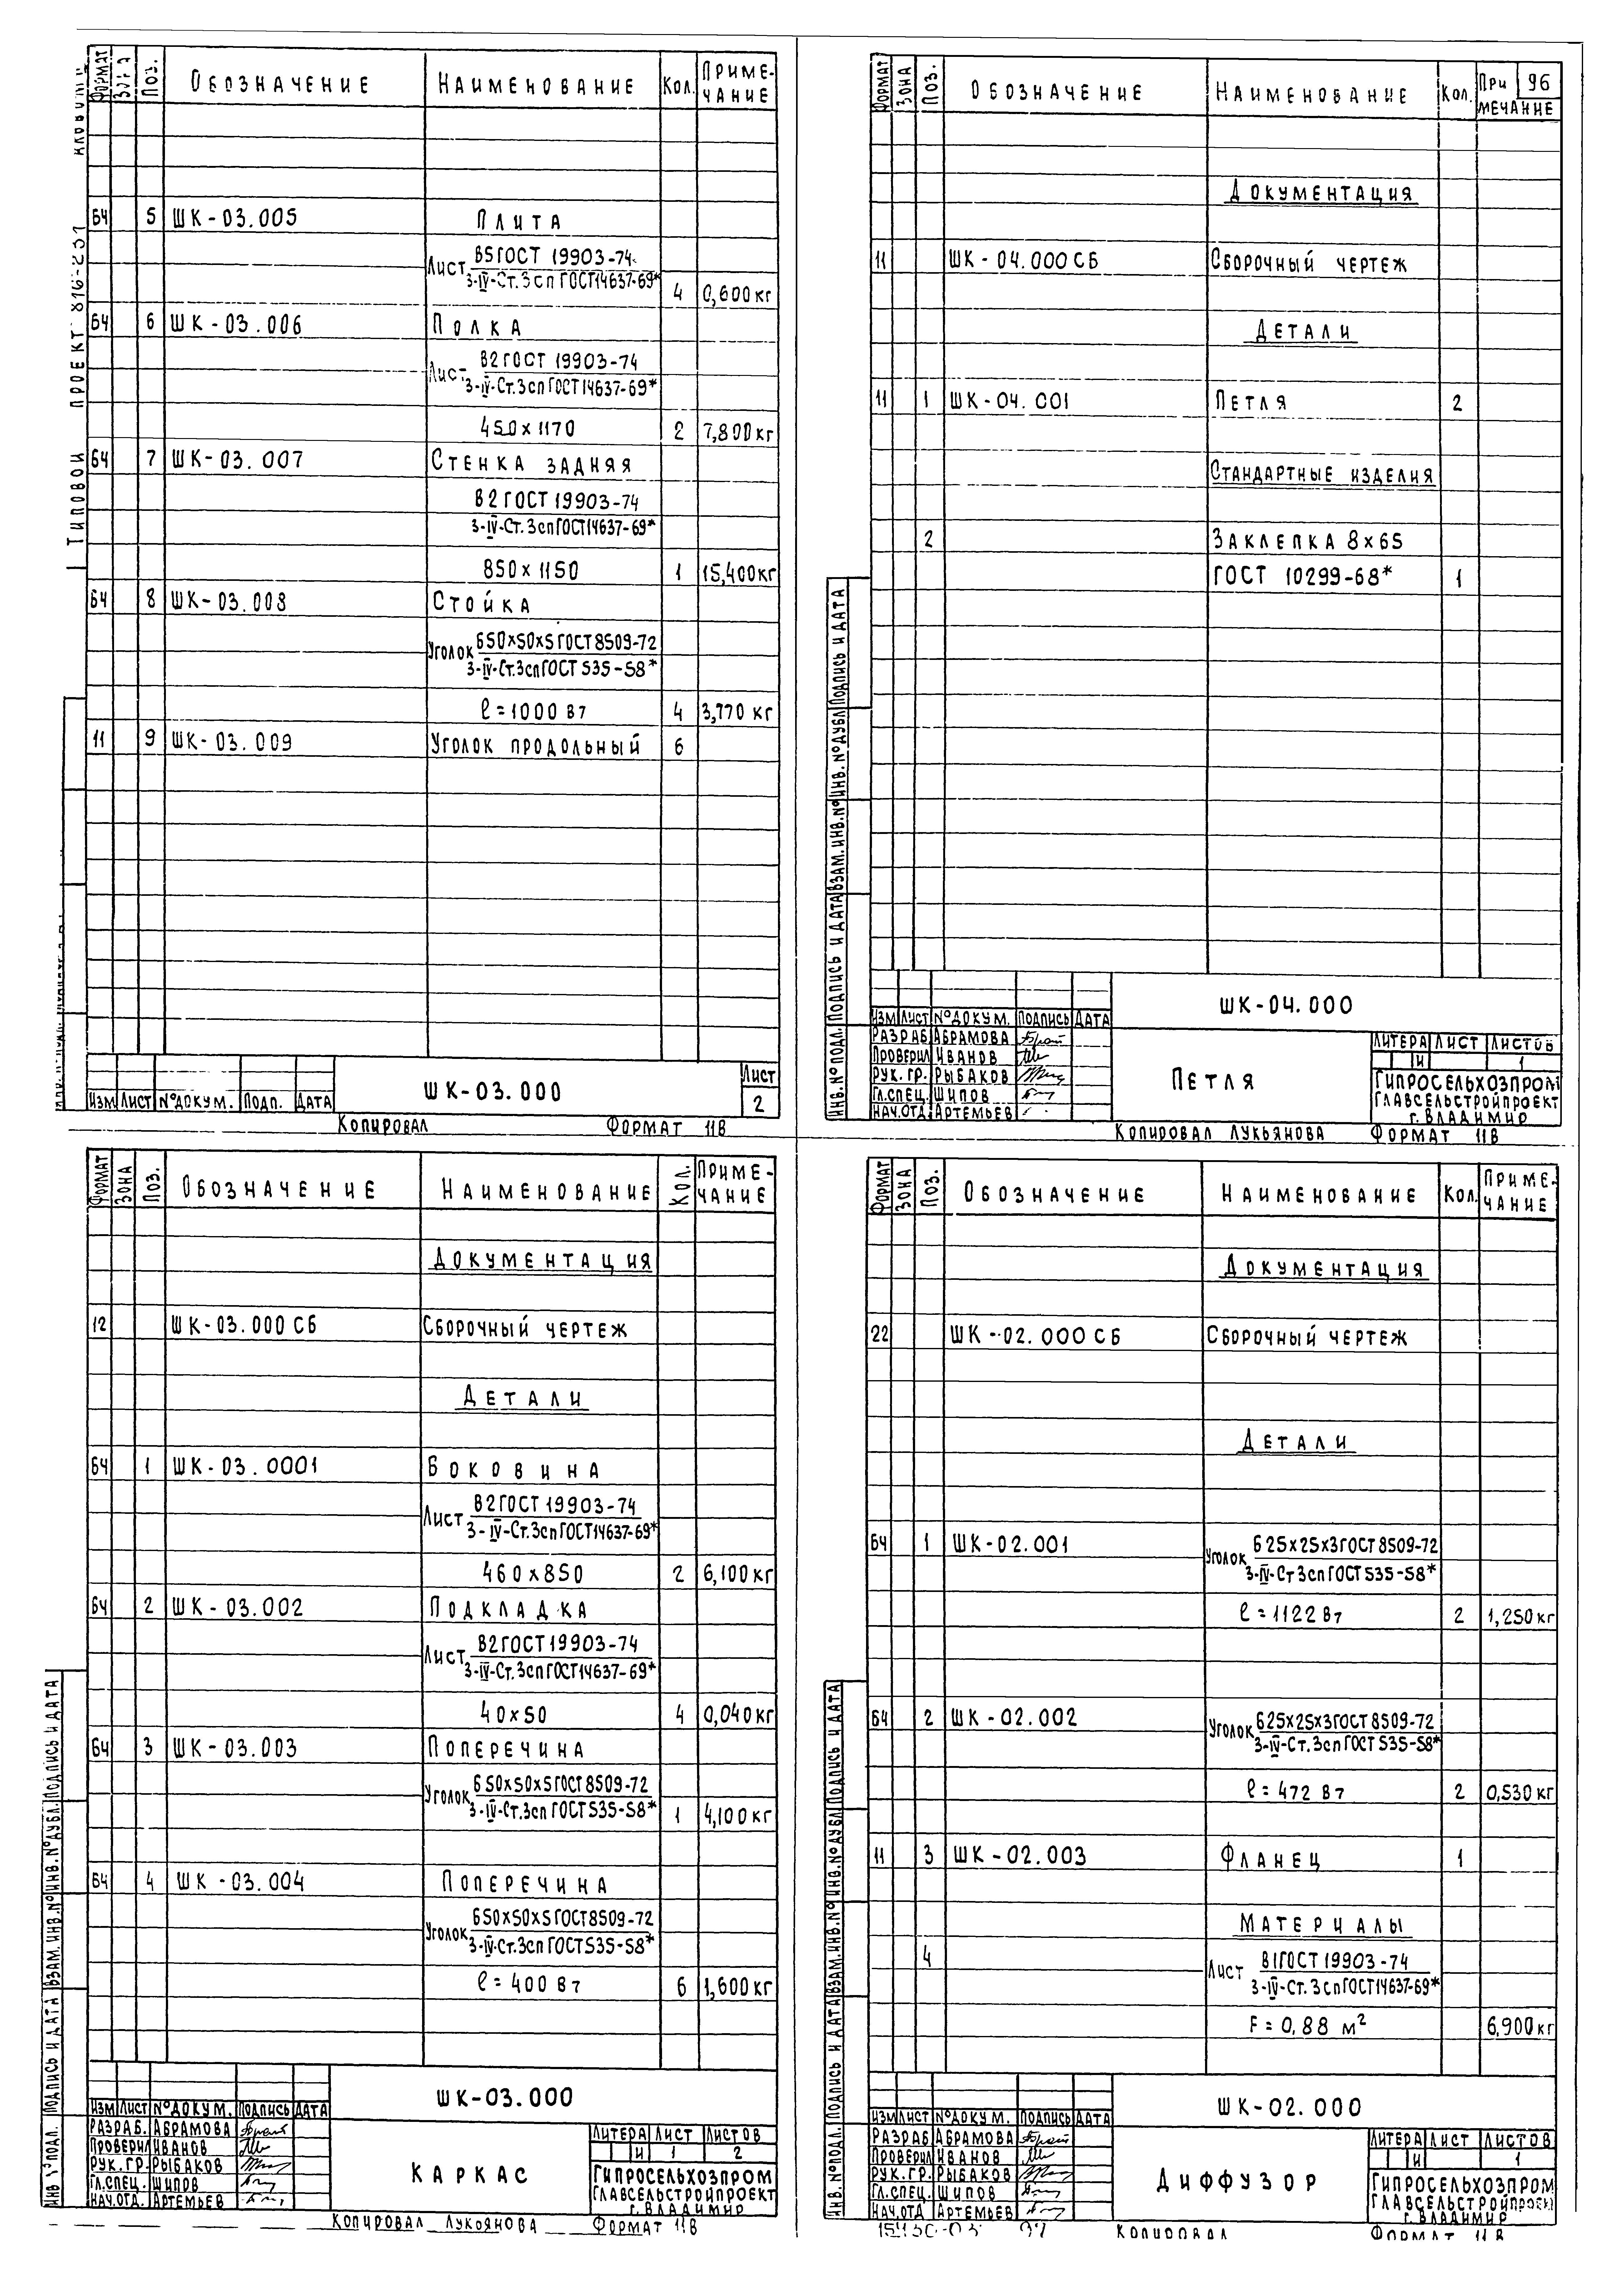 ТИПОВОЙ ПРОЕКТ 816-231
ФОРМАТ ЗОНА ПОЗ. ОБОЗНАЧЕНИЕ НАИМЕНОВАНИЕ КОЛ. ПРИМЕ-
ЧАНИЕ
БЧ 5 ШК-03.005 ПЛИТА
Лист В5 ГОСТ 19903-74
3-IV-Ст.3сп ГОСТ14637-69*
4 0,600 кг
БЧ 6 ШК-03.006 ПОЛКА
Лист В2 ГОСТ 19903-74
3-IV-Ст.3сп ГОСТ14637-69*
450х1170 2 7,800 кг
БЧ 7 ШК-03.007 СТЕНКА ЗАДНЯЯ
В2 ГОСТ 19903-74
3-IV-Ст.3сп ГОСТ14637-69*
850х1150 1 15,400 кг
БЧ 8 ШК-03.008 СТОЙКА
Уголок Б50х50х5 ГОСТ 8509-72
3-IV-Ст.3сп ГОСТ 535-58*
ℓ=1000 Вт 4 3,770 кг
11 9 ШК-03.009 УГОЛОК ПРОДОЛЬНЫЙ 6
ШК-03.000
ЛИСТ
2
ИЗМ ЛИСТ №ДОКУМ. ПОДП. ДАТА
КОПИРОВАЛ ФОРМАТ 11В
ФОРМАТ ЗОНА ПОЗ. ОБОЗНАЧЕНИЕ НАИМЕНОВАНИЕ КОЛ. ПРИ
МЕЧАНИЕ
96
ДОКУМЕНТАЦИЯ
11 ШК-04.000 СБ СБОРОЧНЫЙ ЧЕРТЕЖ
ДЕТАЛИ
11 1 ШК-04.001 ПЕТЛЯ 2
СТАНДАРТНЫЕ ИЗДЕЛИЯ
2 ЗАКЛЕПКА 8х65
ГОСТ 10299-68* 1
ИНВ.№ПОДЛ. ПОДПИСЬ И ДАТА ВЗАМ.ИНВ.№ ИНВ.№ДУБЛ ПОДПИСЬ И ДАТА
ШК-04.000
ИЗМ ЛИСТ №ДОКУМ. ПОДПИСЬ ДАТА
РАЗРАБ АБРАМОВА
ПРОВЕРИЛ ИВАНОВ
РУК. ГР. РЫБАКОВ
ГЛ.СПЕЦ. ШИПОВ
НАЧ.ОТД. АРТЕМЬЕВ
ПЕТЛЯ
ЛИТЕРА ЛИСТ ЛИСТОВ
И 1
ГИПРОСЕЛЬХОЗПРОМ
ГЛАВСЕЛЬСТРОЙПРОЕКТ
г. ВЛАДИМИР
КОПИРОВАЛ ЛУКЬЯНОВА ФОРМАТ 11В
ФОРМАТ ЗОНА ПОЗ. ОБОЗНАЧЕНИЕ НАИМЕНОВАНИЕ КОЛ. ПРИМЕ-
ЧАНИЕ
ДОКУМЕНТАЦИЯ
12 ШК-03.000 СБ СБОРОЧНЫЙ ЧЕРТЕЖ
ДЕТАЛИ
БЧ 1 ШК-03.0001 БОКОВИНА
Лист В2 ГОСТ 19903-74
3-IV-Ст.3сп ГОСТ14637-69*
460х850 2 6,100 кг
БЧ 2 ШК-03.002 ПОДКЛАДКА
Лист В2 ГОСТ 19903-74
3-IV-Ст.3сп ГОСТ14637-69*
40х50 4 0,040 кг
БЧ 3 ШК-03.003 ПОПЕРЕЧИНА
Уголок Б50х50х5 ГОСТ 8509-72
3-IV-Ст.3сп ГОСТ 535-58*
1 4,100 кг
БЧ 4 ШК-03.004 ПОПЕРЕЧИНА
Уголок Б50х50х5 ГОСТ 8509-72
3-IV-Ст.3сп ГОСТ 535-58*
ℓ=400 Вт 6 1,600 кг
ИНВ №ПОДЛ. ПОДПИСЬ И ДАТА ВЗАМ.ИНВ.№ ИНВ.№ДУБЛ. ПОДПИСЬ И ДАТА
ШК-03.000
ИЗМ ЛИСТ №ДОКУМ. ПОДПИСЬ ДАТА
РАЗРАБ. АБРАМОВА
ПРОВЕРИЛ ИВАНОВ
РУК. ГР. РЫБАКОВ
ГЛ.СПЕЦ. ШИПОВ
НАЧ.ОТД. АРТЕМЬЕВ
КАРКАС
ЛИТЕРА ЛИСТ ЛИСТОВ
И 1 2
ГИПРОСЕЛЬХОЗПРОМ
ГЛАВСЕЛЬСТРОЙПРОЕКТ
г. ВЛАДИМИР
КОПИРОВАЛ ЛУКЬЯНОВА ФОРМАТ 11В
ФОРМАТ ЗОНА ПОЗ. ОБОЗНАЧЕНИЕ НАИМЕНОВАНИЕ КОЛ. ПРИМЕ-
ЧАНИЕ
ДОКУМЕНТАЦИЯ
22 ШК-02.000 СБ СБОРОЧНЫЙ ЧЕРТЕЖ
ДЕТАЛИ
БЧ 1 ШК-02.001 Уголок Б25х25х3 ГОСТ 8509-72
3-IV-Ст 3сп ГОСТ 535-58*
ℓ=1122 Вт 2 1,250 кг
БЧ 2 ШК-02.002 Уголок Б25х25х3 ГОСТ 8509-72
3-IV-Ст.3сп ГОСТ 535-58*
ℓ=472 Вт 2 0,530 кг
11 3 ШК-02.003 ФЛАНЕЦ 1
МАТЕРИАЛЫ
4 Лист В1 ГОСТ 19903-74
3-IV-Ст.3сп ГОСТ14637-69*
F=0,88 м² 6,900 кг
ИНВ.№ПОДЛ. ПОДПИСЬ И ДАТА ВЗАМ.ИНВ.№ ИНВ.№ДУБЛ ПОДПИСЬ И ДАТА
ШК-02.000
ИЗМ ЛИСТ №ДОКУМ. ПОДПИСЬ ДАТА
РАЗРАБ АБРАМОВА
ПРОВЕРИЛ ИВАНОВ
РУК. ГР. РЫБАКОВ
ГЛ.СПЕЦ. ШИПОВ
НАЧ.ОТД АРТЕМЬЕВ
ДИФФУЗОР
ЛИТЕРА ЛИСТ ЛИСТОВ
И 1
ГИПРОСЕЛЬХОЗПРОМ
ГЛАВСЕЛЬСТРОЙПРОЕКТ
г. ВЛАДИМИР
97 КОПИРОВАЛ ФОРМАТ 11В